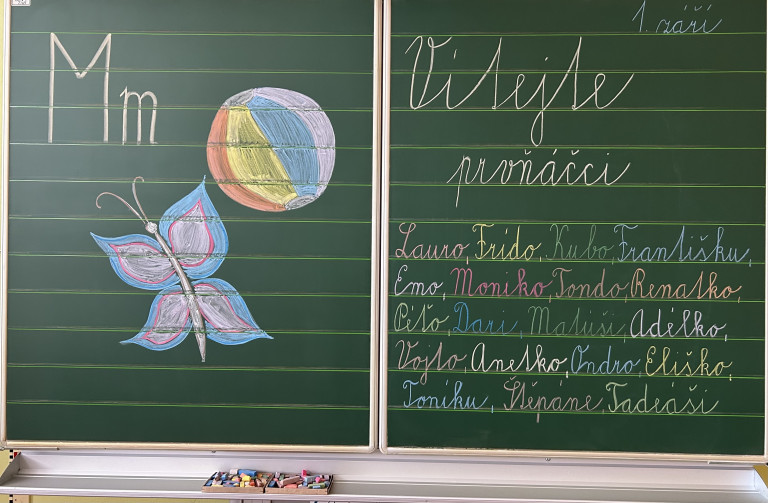 M m
1. září
Vítejte
prvňáčci
Lauro, Frído, Kubo, Františku,
Emo, Moniko, Tondo, Renatko,
Péťo, Dari, Matúši, Adélko,
Vojto, Anetko, Ondro, Eliško,
Toníku, Štěpáne, Tadeáši